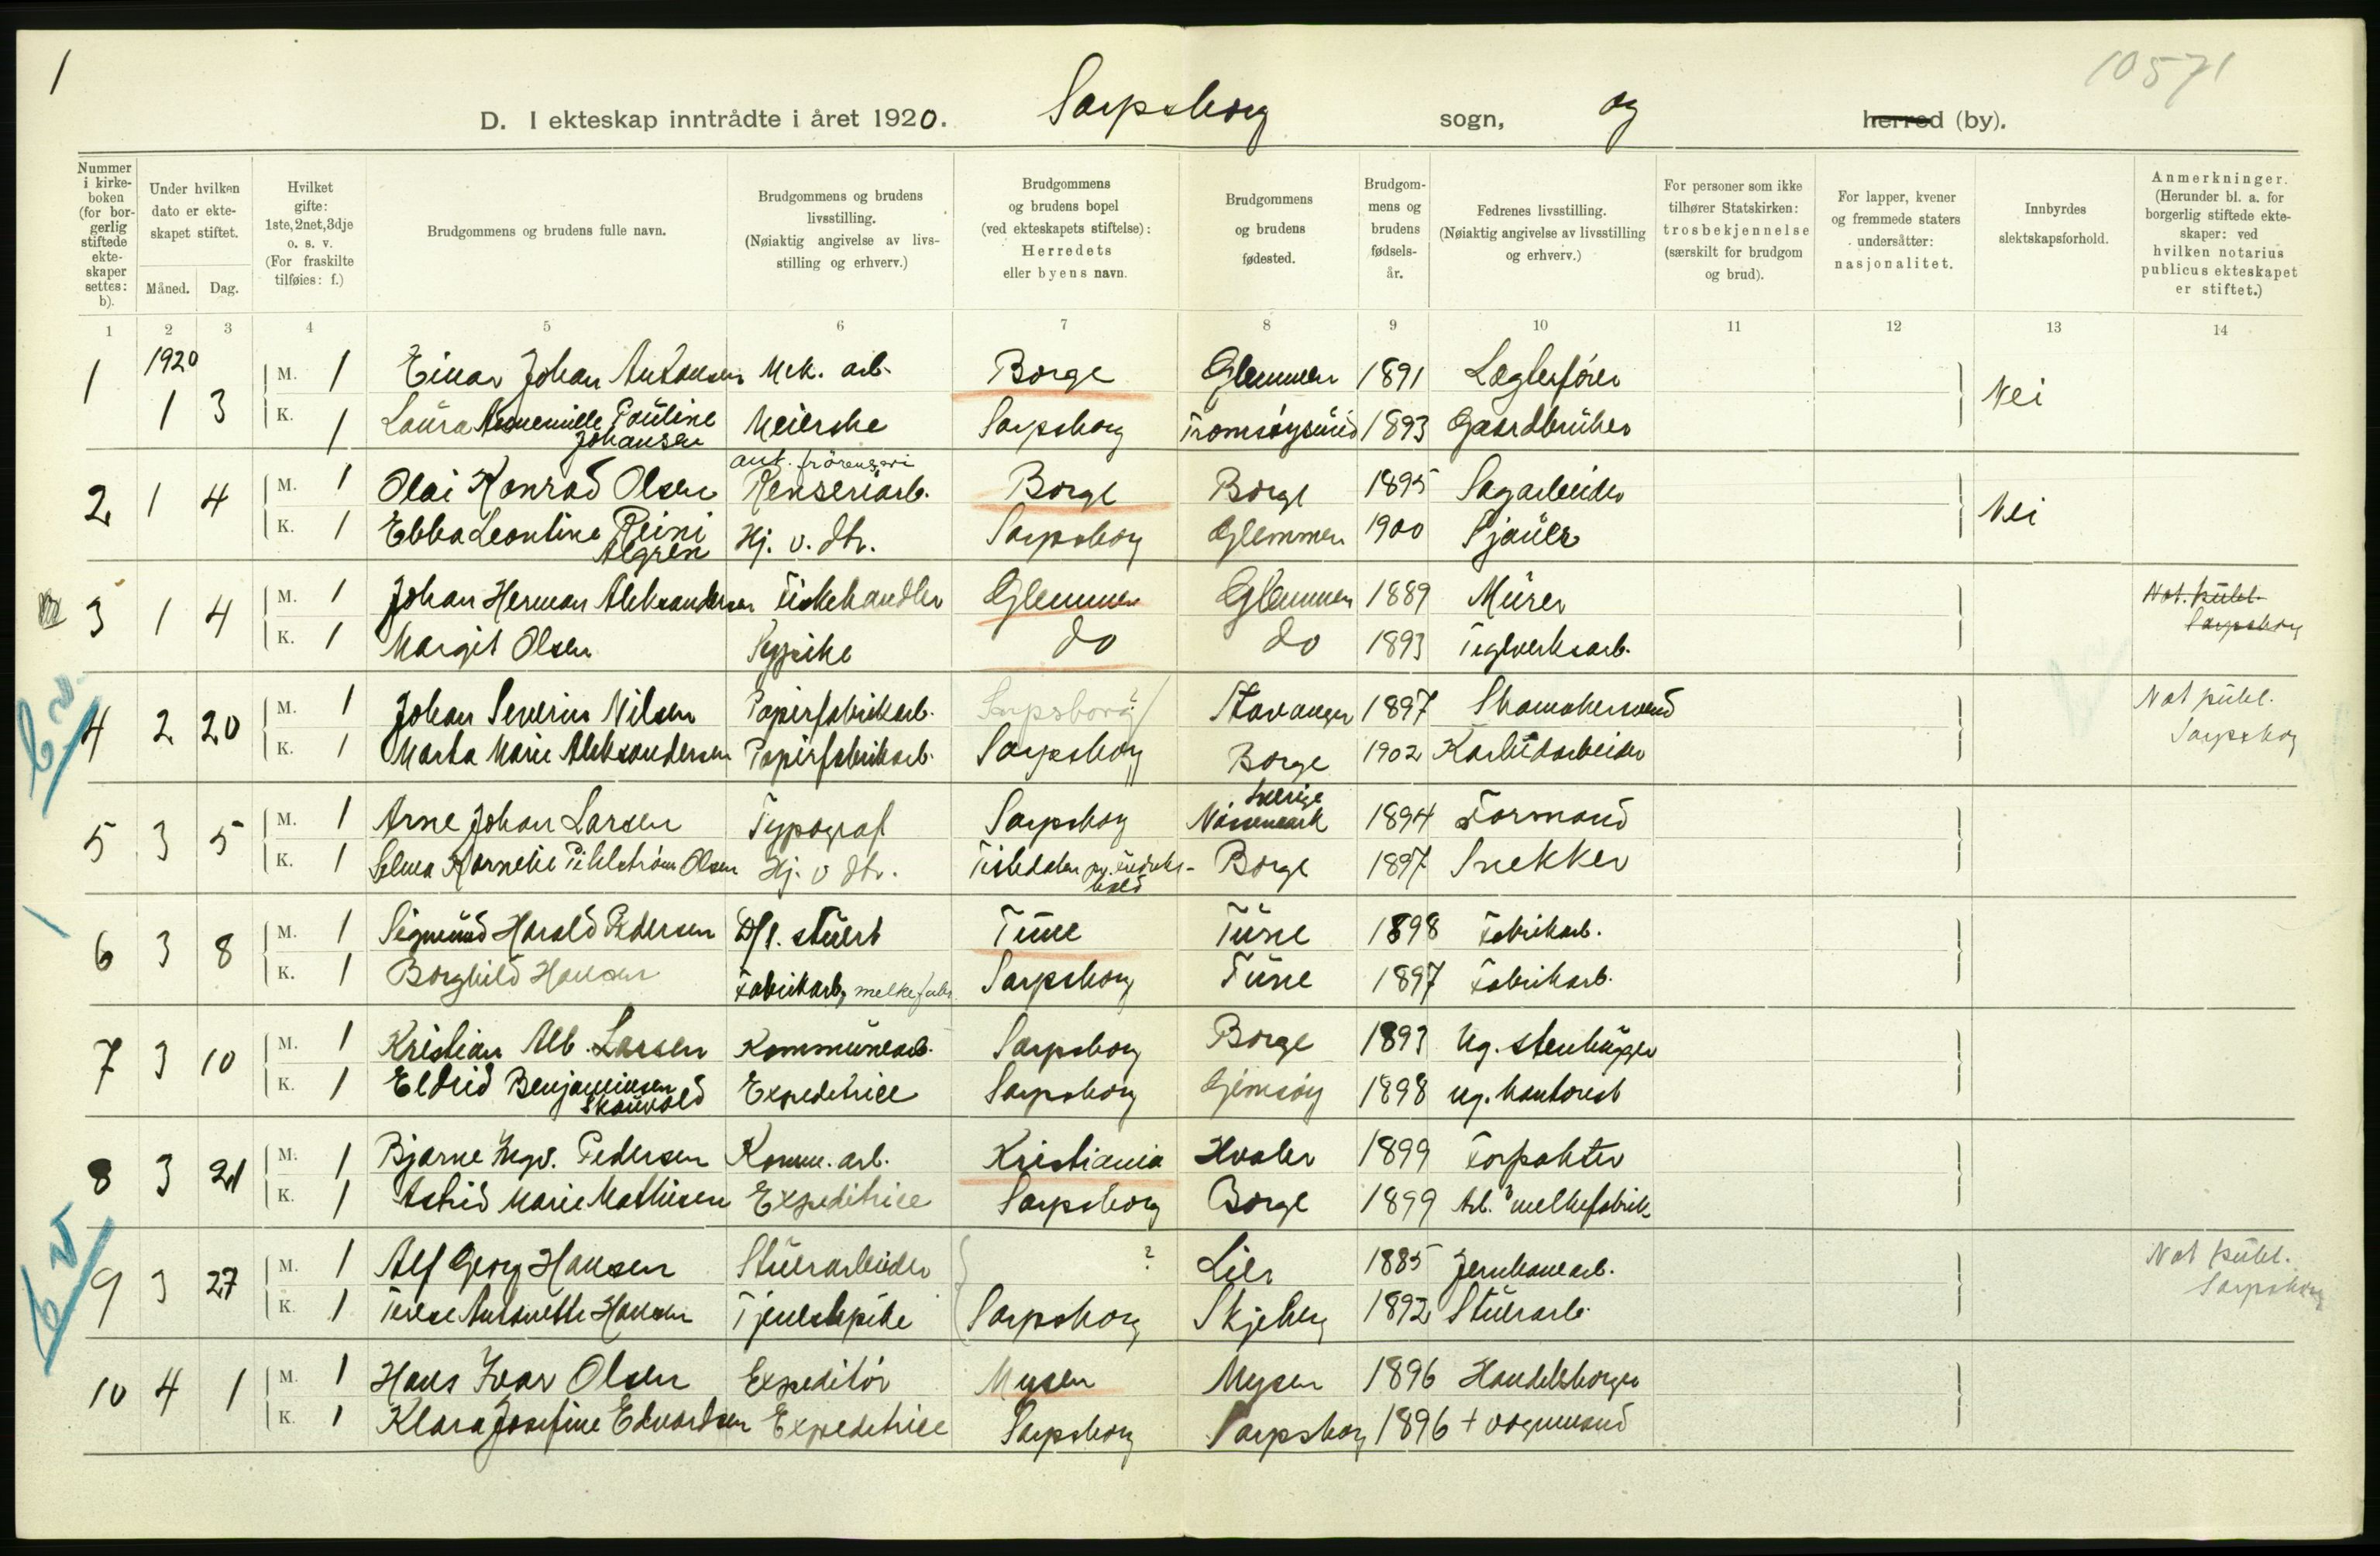 1
10571
D. I ekteskap inntrådte i året 1920. Sarpsborg sogn, og herred (by).
Nummer i kirkeboken (for borgerlig stiftede ekteskaper settes: b).
Under hvilken dato er ekteskapet stiftet.
Måned. Dag.
Hvilket gifte: 1ste, 2net, 3dje o. s. v. (For fraskilte tilføies: f.)
Brudgommens og brudens fulle navn.
Brudgommens og brudens livsstilling. (Nøiaktig angivelse av livsstilling og erhverv.)
Brudgommens og brudens bopel (ved ekteskapets stiftelse): Herredets eller byens navn.
Brudgommens og brudens fødested.
Brudgommens og brudens fødselsår.
Fedrenes livsstilling. (Nøiaktig angivelse av livsstilling og erhverv.)
For personer som ikke tilhører Statskirken: trosbekjennelse (særskilt for brudgom og brud).
For lapper, kvener og fremmede staters undersåtter: nasjonalitet.
Innbyrdes slektskapsforhold.
Anmerkninger. (Herunder bl. a. for borgerlig stiftede ekteskaper: ved hvilken notarius publicus ekteskapet er stiftet.)
1 2 3 4 5 6 7 8 9 10 11 12 13 14
1920
1 1 3 M. 1 Einar Johan Antonsen Mek. arb. Borge Glemmen 1891 Lægterfører Nei
K. 1 Laura Pauline Johansen Meierske Sarpsborg Tromsøysund 1893 Gaardbruker
2 1 4 M. 1 Olai Konrad Olsen Renseriarb. Borge Borge 1895 Sagarbeider Nei
K. 1 Ebba Leontine Reini Algren Hj. v. dtr. Sarpsborg Glemmen 1900 Sjauer
3 1 4 M. 1 Johan Herman Aleksandersen Fiskehandler Glemmen Glemmen 1889 Murer Not. publ. Sarpsborg
K. 1 Margit Olsen Sypike do do 1893 Teglverksarb.
4 2 20 M. 1 Johan Severin Nilsen Papirfabrikarb. Sarpsborg? Stavanger 1897 Skomakersvend Not publ. Sarpsborg
K. 1 Marta Marie Aleksandersen Papirfabrikarb. Sarpsborg Borge 1902 Karbidarbeider
5 3 5 M. 1 Arne Johan Larsen Typograf Sarpsborg Sverige 1894 Formand
K. 1 Selma Kornelie Pihlstrøm Olsen Hj. v dtr. Tistedalen Borge 1897 Snekker
6 3 8 M. 1 Sigmund Harald Pedersen D/s. stuert Tune Tune 1898 Fabrikarb.
K. 1 Borghild Hansen Fabrikarb, melkefabr. Sarpsborg Tune 1897 Fabrikarb.
7 3 10 M. 1 Kristian Alb. Larsen Kommunearb. Sarpsborg Borge 1893 Ug. stenhugger
K. 1 Eldrid Benjaminsen Skauvold Expeditrice Sarpsborg Gimsøy 1898 Ug. kontorist
8 3 21 M. 1 Bjarne Ingv. Pedersen Komm. arb. Kristiania Hvaler 1899 Forpakter
K. 1 Astrid Marie Mathisen Expeditrice Sarpsborg Borge 1899 Arb. melkefabrik
9 3 27 M. 1 Alf Georg Hansen Stuerarbeider ? Lier 1885 Jernbanearb. Not publ. Sarpsborg
K. 1 Terese Antonette Hansen Tjenestepike Sarpsborg Skjeberg 1892 Stuerarb.
10 4 1 M. 1 Hans Ivar Olsen Expeditør Mysen Mysen 1896 Handelsborger
K. 1 Klara Josefine Edvardsen Expeditrice Sarpsborg Sarpsborg 1896 + vognmand